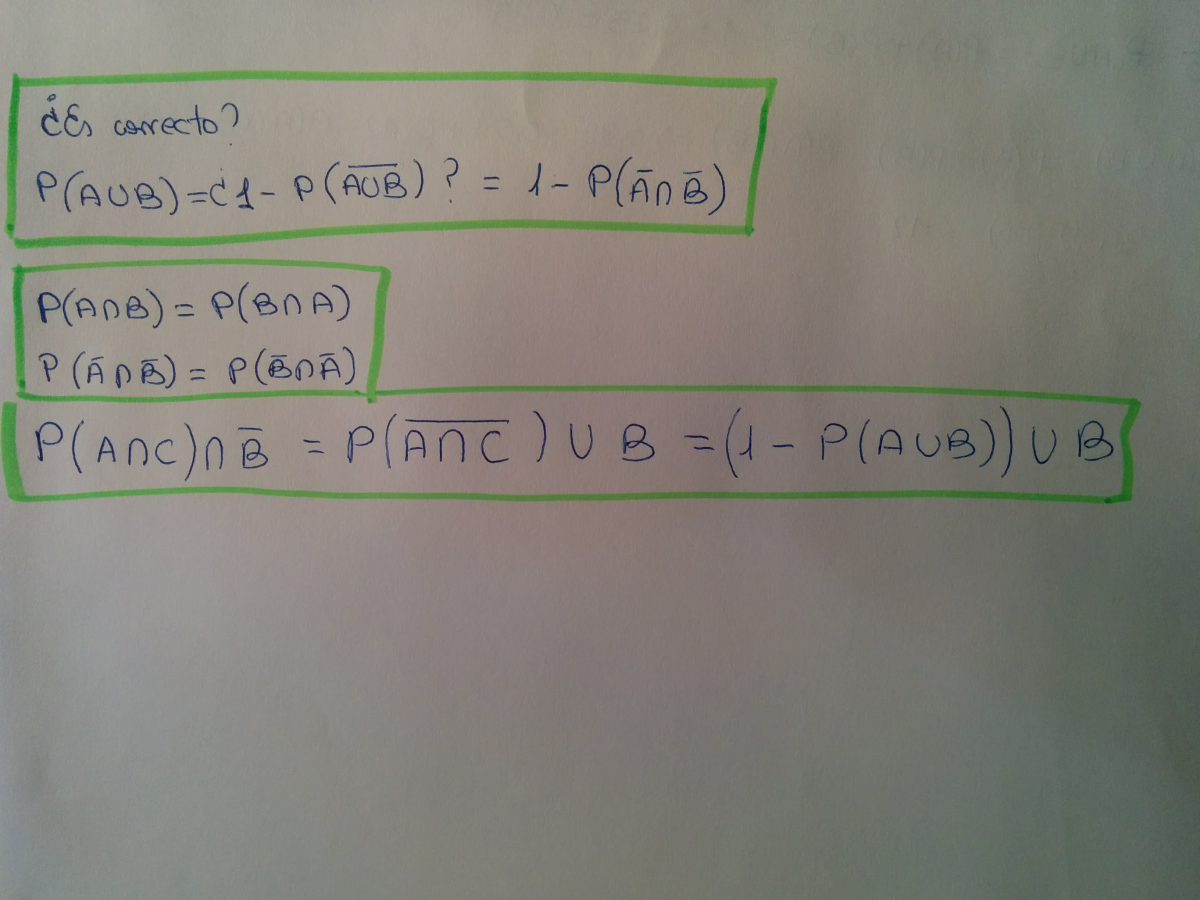 ¿Es correcto?
P(A∪B)=¿1- P(A̅∪̅B̅)? = 1- P(Ā∩B̄)
P(A∩B) = P(B∩A)
P(Ā∩B̄) = P(B̄∩Ā)
P(A∩C)∩B̄ = P(A̅∩̅C̅)∪B =(1- P(A∪B))∪B